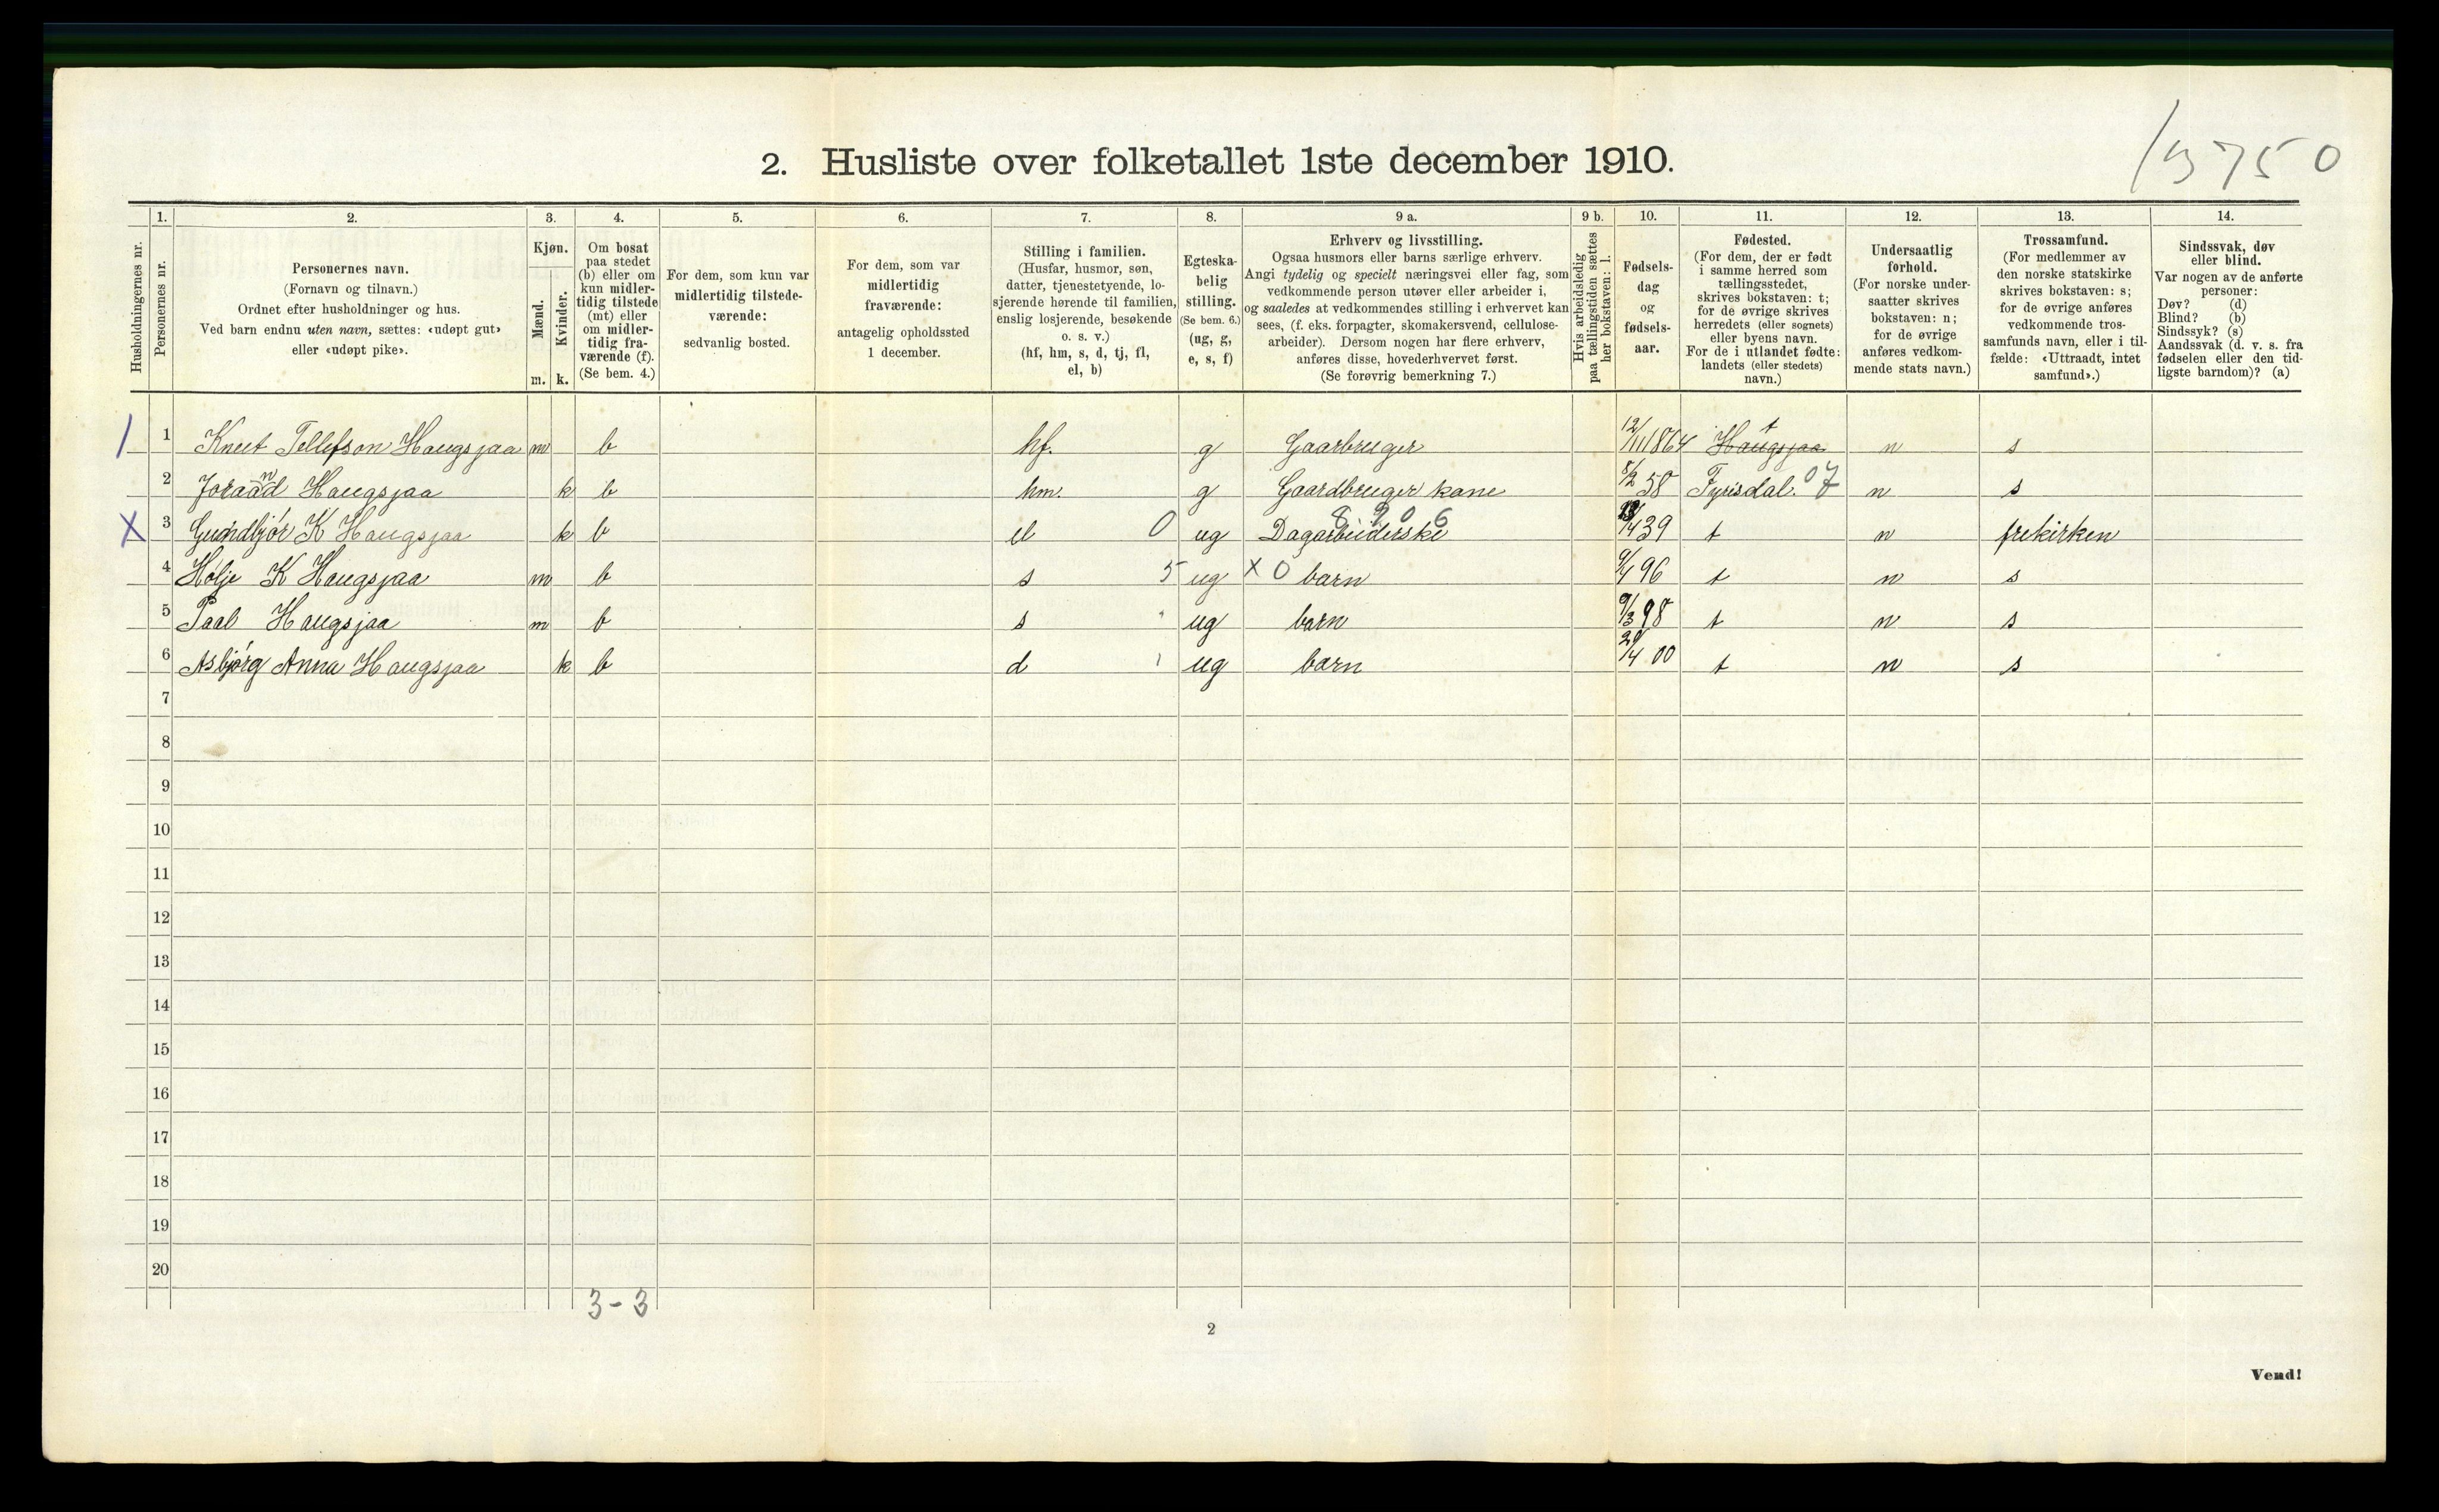 2. Husliste over folketallet 1ste december 1910.
1. 2. 3. 4. 5. 6. 7. 8. 9 a. 9 b. 10. 11. 12. 13. 14.
Husholdningernes nr.
Personernes nr.
Personernes navn.
(Fornavn og tilnavn.)
Ordnet efter husholdninger og hus.
Ved barn endnu uten navn, sættes: «udøpt gut»
eller «udøpt pike».
Kjøn.
Mænd.
Kvinder.
m. k.
Om bosat
paa stedet
(b) eller om
kun midler-
tidig tilstede
(mt) eller
om midler-
tidig fra-
værende (f).
(Se bem. 4.)
For dem, som kun var
midlertidig tilstede-
værende:
sedvanlig bosted.
For dem, som var
midlertidig
fraværende:
antagelig opholdssted
1 december.
Stilling i familien.
(Husfar, husmor, søn,
datter, tjenestetyende, lo-
sjerende hørende til familien,
enslig losjerende, besøkende
o. s. v.)
(hf, hm, s, d, tj, fl,
el, b)
Egteska-
belig
stilling.
(Se bem. 6.)
(ug, g,
e, s, f)
Erhverv og livsstilling.
Ogsaa husmors eller barns særlige erhverv.
Angi tydelig og specielt næringsvei eller fag, som
vedkommende person utøver eller arbeider i,
og saaledes at vedkommendes stilling i erhvervet kan
sees, (f. eks. forpagter, skomakersvend, cellulose-
arbeider). Dersom nogen har flere erhverv,
anføres disse, hovederhvervet først.
(Se forøvrig bemerkning 7.)
Hvis arbeidsledig
paa tællingstiden sættes
her bokstaven: l.
Fødsels-
dag
og
fødsels-
aar.
Fødested.
(For dem, der er født
i samme herred som
tællingsstedet,
skrives bokstaven: t;
for de øvrige skrives
herredets (eller sognets)
eller byens navn.
For de i utlandet fødte:
landets (eller stedets)
navn.)
Undersaatlig
forhold.
(For norske under-
saatter skrives
bokstaven: n;
for de øvrige
anføres vedkom-
mende stats navn.)
Trossamfund.
(For medlemmer av
den norske statskirke
skrives bokstaven: s;
for de øvrige anføres
vedkommende tros-
samfunds navn, eller i til-
fælde: «Uttraadt, intet
samfund».)
Sindssvak, døv
eller blind.
Var nogen av de anførte
personer:
Døv? (d)
Blind? (b)
Sindssyk? (s)
Aandssvak (d. v. s. fra
fødselen eller den tid-
ligste barndom)? (a)
1 Knut Tellefson Haugsjaa m b hf. g Gaarbruger 12/11 1864 Haugsjaa t n s
2 Joraand Haugsjaa k b hm. g Gaardbruger kone 8/2 58 Fyrisdal. 07 n s
X 3 Gundbjór K Haugsjaa k b el 0 ug Dagarbeiderske 8 9 0 6 39 t n frekirken
4 Hølje K Haugsjaa m b s 5 ug X 0 barn 96 t n s
5 Paal Haugsjaa m b s ug barn 9/3 98 t n s
6 Asbjórg Anna Haugsjaa k b d ug barn 00 t n s
7
8
9
10
11
12
13
14
15
16
17
18
19
20
3 - 3
2
Vend!